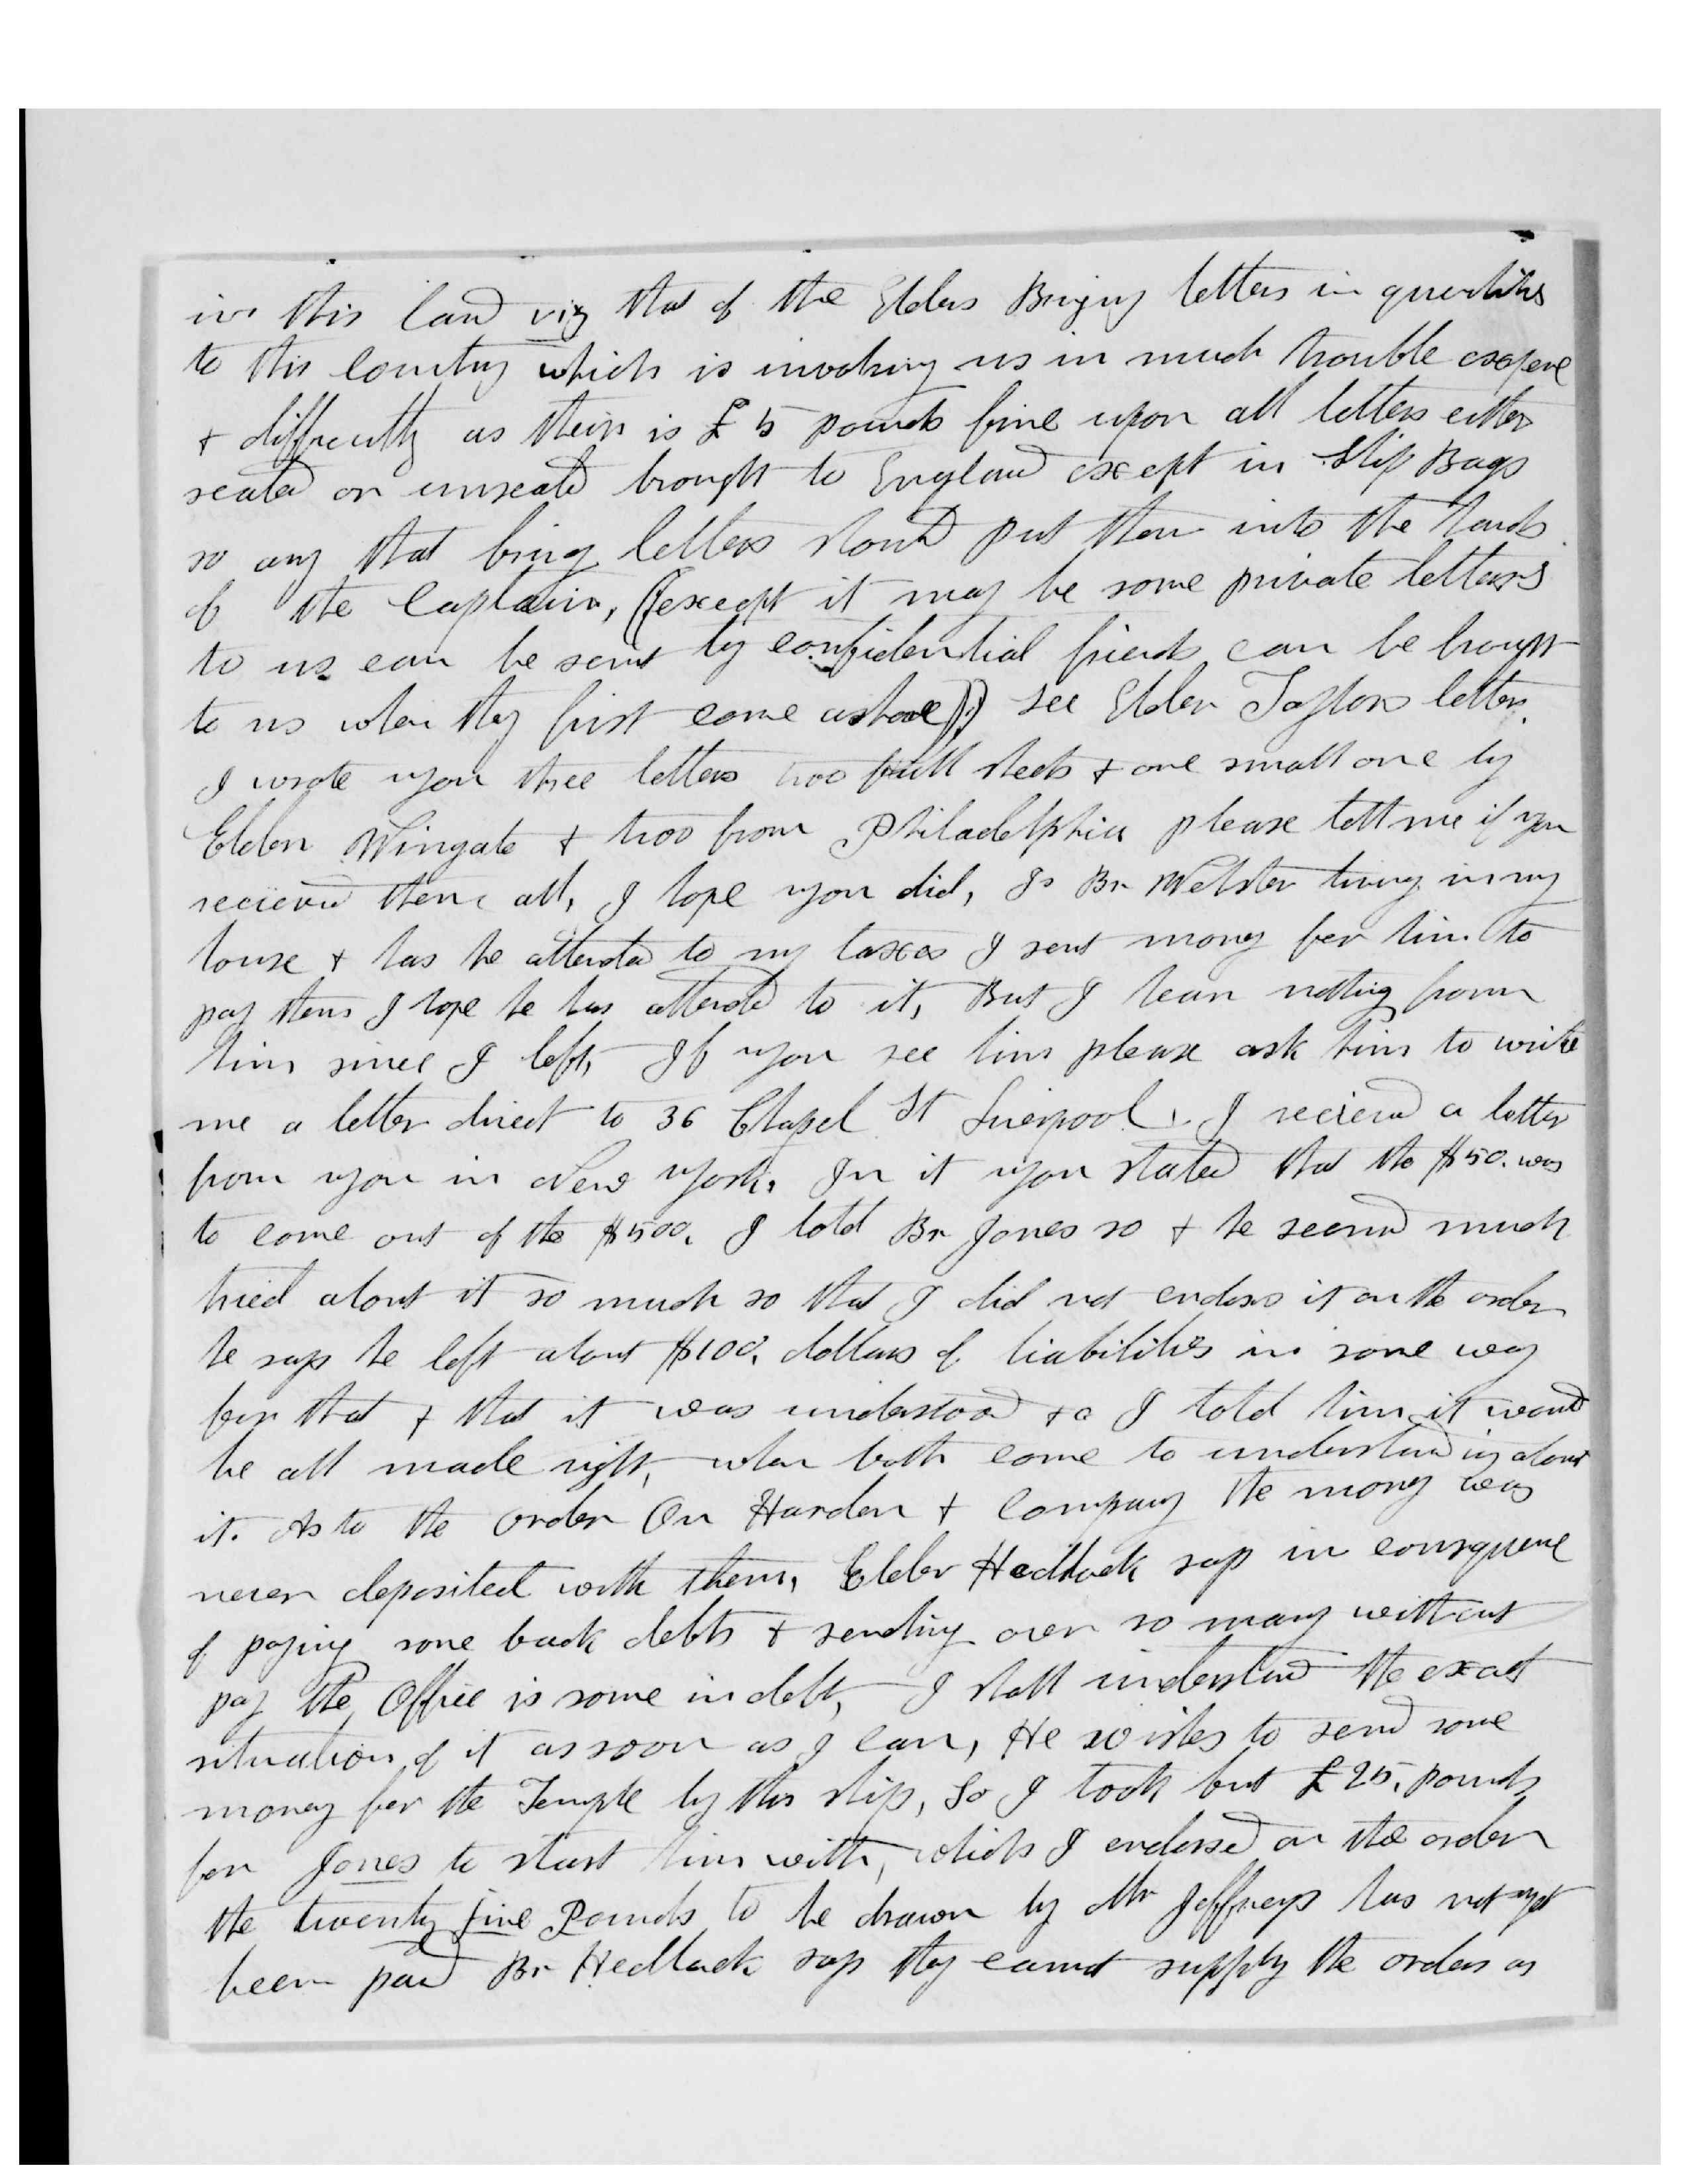 in this land viz that of the Elders Bringing letters in quantities
to this Country which is involving us in much trouble expene
& difficulty as their is £5 pounds fine upon all letters either
sealed or unseald brought to England except in Ship Bags
so any that bring letters should put them into the hands
of the Captain, (except it may be some private letters
to us can be sent by confidential friends can be brought
to us when they first come ashore) see Elder Taylors letter.
I wrote you three letters two full sheets & one small one by
Elder Wingate & two from Philadelphia please tell me if you
recieved them all, I hope you did, Is Br Webster living in my
house & has he attended to my taxes I sent money for him to
pay them I hope he has attended to it, But I hear nothing from
him since I left, If you see him please ask him to write
me a letter direct to 36 Chapel St Liverpool. I recieved a letter
from you in New York. In it you stated that the $50. was
to come out of the $500. I told Br Jones so & he seemed much
tried about it so much so that I did not endorse it on the order
he says he left about $100. dollars of liabilities in some way
for that & that it was understood &c I told him it would
be all made right, when both come to understanding about
it. As to the order On Harden & Company the money was
never deposited with them, Elder Hedlock says in consequence
of paying some back debts & sending over so many without
pay the Office is some in debt, I shall understand the exact
situation of it as soon as I can, He wishes to send some
money for the Temple by this ship, So I took but £25, pounds
for Jones to start him with, which I endorsed on the order
the twenty five Pounds to be drawn by Mr Jeffreys has not yet
been paid Br Hedlock says they cannot supply the orders as